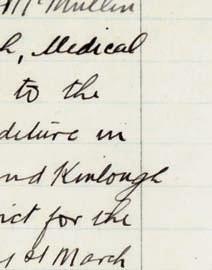 McMullin
h, Medical
to the
diture in
nd Kinlough
ict for the
31 March